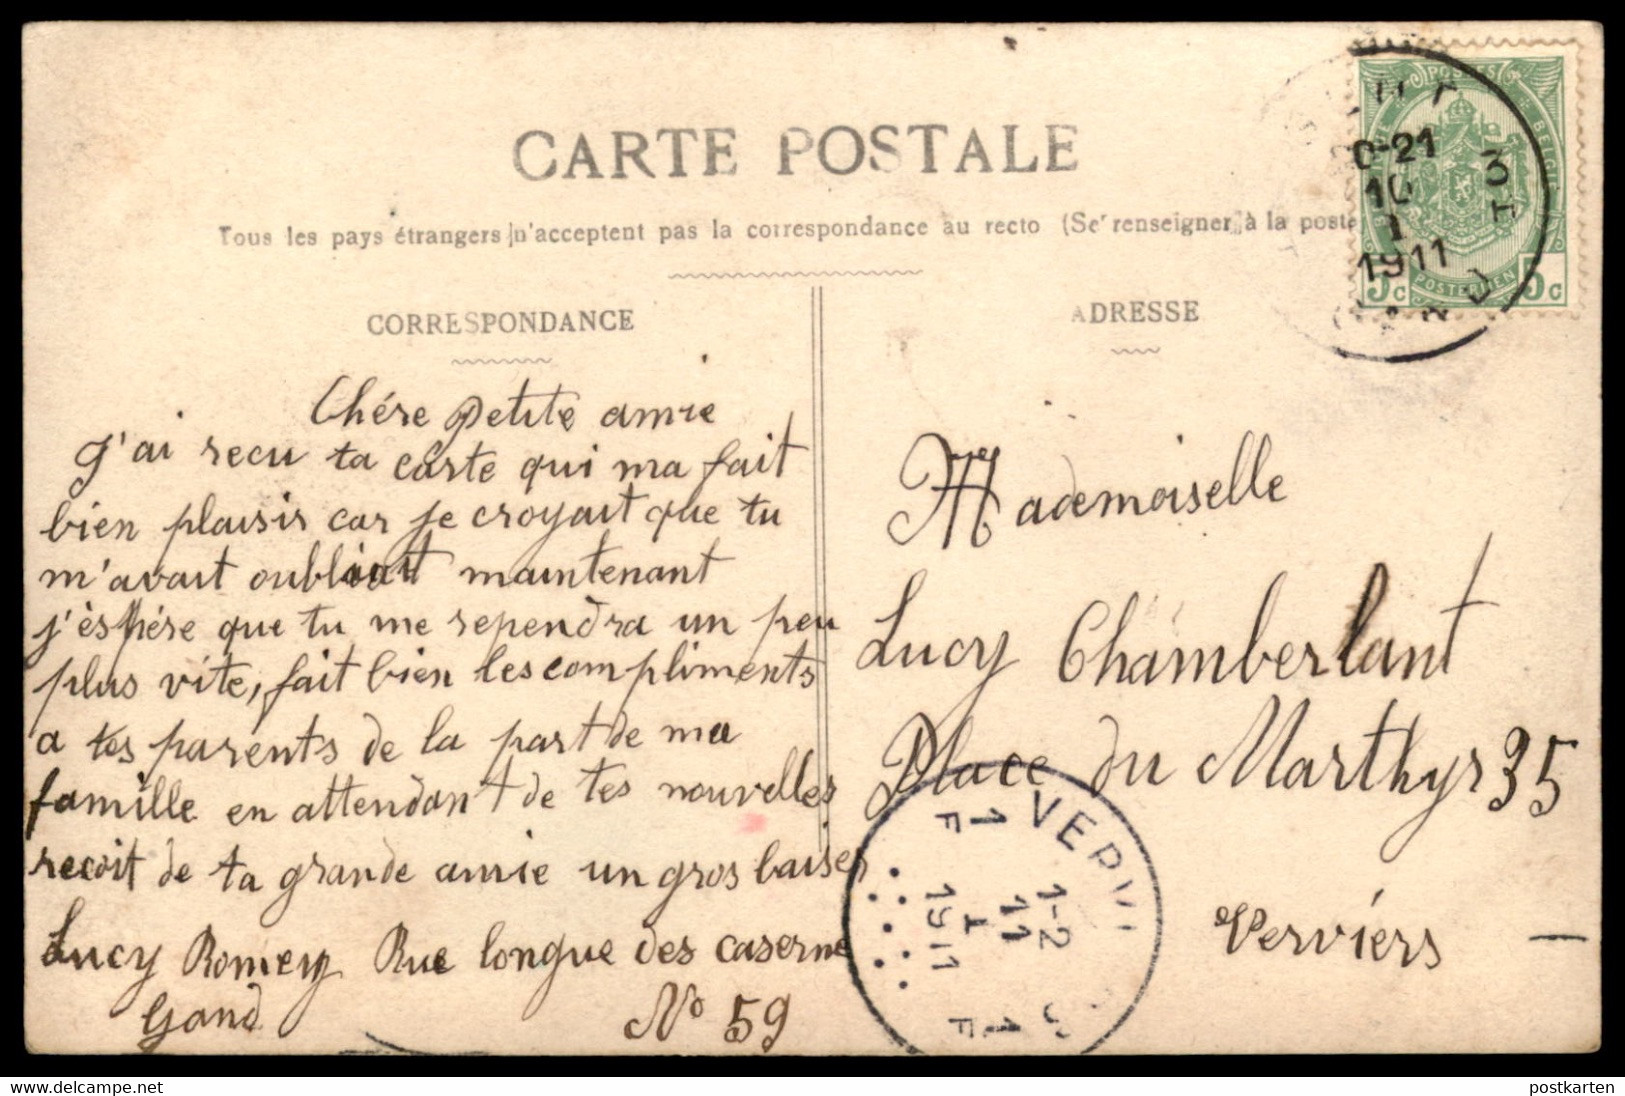 CARTE POSTALE
Tous les pays étrangers n'acceptent pas la correspondance au recto (Se renseigner à la poste
CORRESPONDANCE
Chére petite amie
J'ai recu ta carte qui ma fait
bien plaisir car je croyait que tu
m'avait oubliait maintenant
j'èspére que tu me rependra un peu
plus vite, fait bien les compliments
a tes parents de la part de ma
famille en attendant de tes nouvelles
recoit de ta grande amie un gros baiser
Lucy Romey Rue longue des caserne
Gand No 59
ADRESSE
Mademoiselle
Lucy Chamberlant
Place du Marthyr 35
Verviers
POSTES
BELGIQUE
POSTERIJEN
5c 5c
0-21
10
1
1911
VERVI
1-2
11
I
1911
1F 1F
www.delcampe.net
postkarten